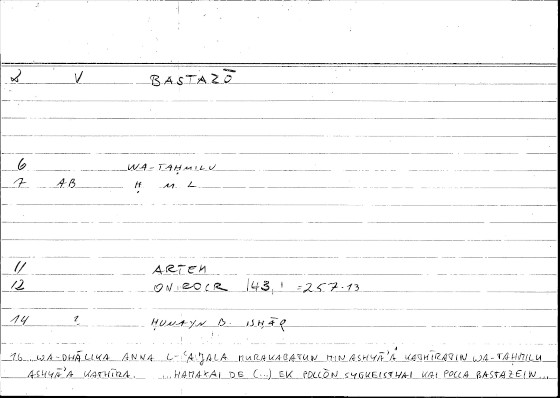 2 V BASTAZŌ
6 WA-TAḤMILU
7 AB Ḥ M L
11 ARTEM
12 ONIROCR 143,1 = 257.13
14 1 ḤUNAYN B. ISḤĀQ
16 WA-DHĀLIKA ANNA L- MURAKABATUN MIN ASHYĀ'A KATHĪRATIN WA-TAḤMILU
ASHYĀ'A KATHĪRA. ...HAMAXAI DE (...) EK POLLŌN SYGKEISTHAI KAI POLLA BASTAZEIN...